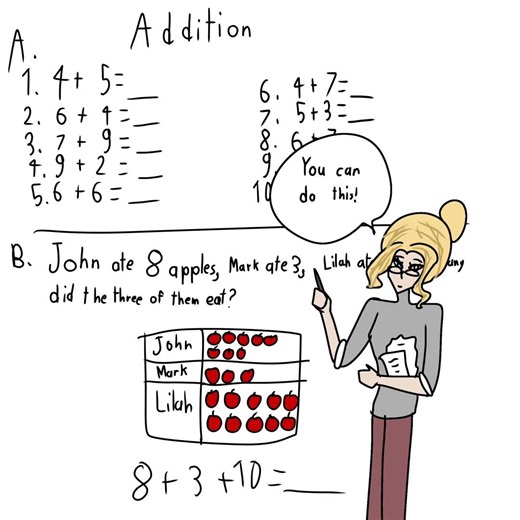 Addition
A.
1. 4 + 5 = __
2. 6 + 4 = __
3. 7 + 9 = __
4. 9 + 2 = __
5. 6 + 6 = __
6. 4 + 7 = __
7. 5 + 3 = __
8.
9
10
You can
do this!
B. John ate 8 apples, Mark ate 3, Lilah
did the three of them eat?
John
Mark
Lilah
8 + 3 + 10 = ____